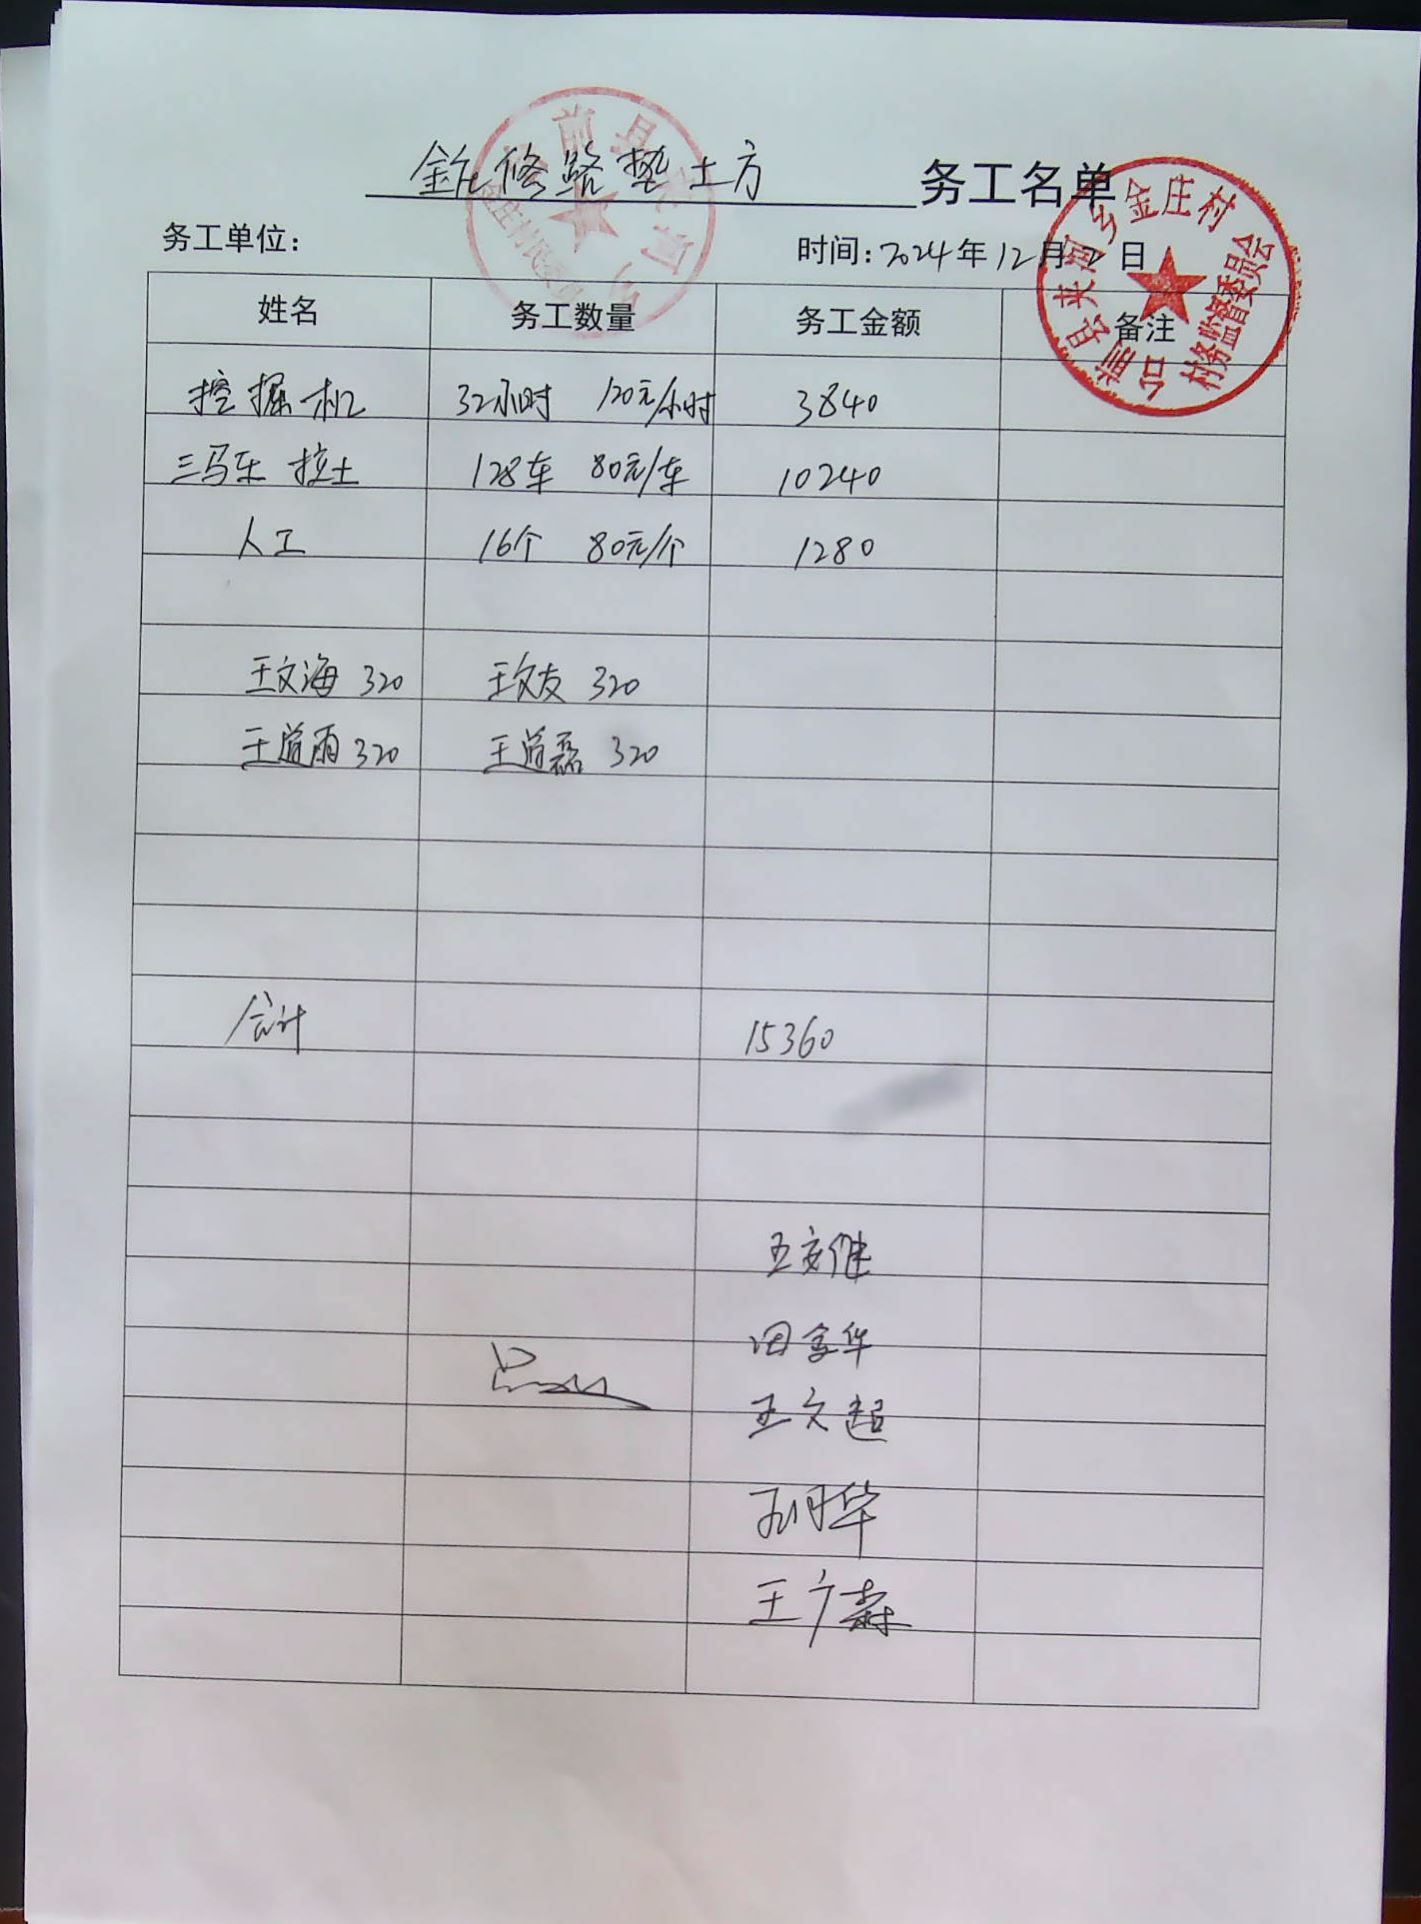 金庄修路垫土方 务工名单
务工单位: 时间:2024年12月2日
姓名 务工数量 务工金额 备注
挖掘机 32小时 120元/小时 3840
三马车拉土 128车 80元/车 10240
人工 16个 80元/个 1280
王文海 320 王文友 320
王道雨 320 王道磊 320
合计 15360
王文继
田金华
王文超
王广森
台前县夹河乡金庄村
村务监督委员会